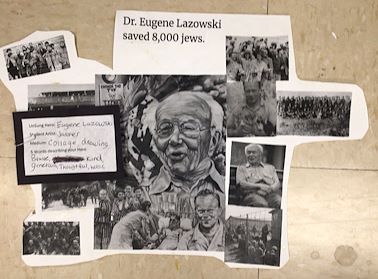 Dr. Eugene Lazowski
saved 8,000 jews.
Unsung Hero: Eugene Lazowski
Student Artist:
Medium: Collage, drawing
5 Words describing your Hero:
Brave, Kind,
generous, Thoughtful, wise